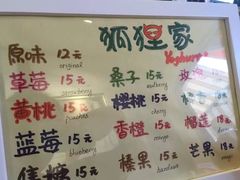 狐狸家
Yoghurt
原味 12元
original
草莓 15元
strawberry
黄桃 15元
peaches
蓝莓 15元
blueberry
焦糖
桑子 15元
mulberry
樱桃 15元
cherry
香橙 15元
orange
榛果 15元
hazelnut
榴莲 18元
芒果 18元
mango